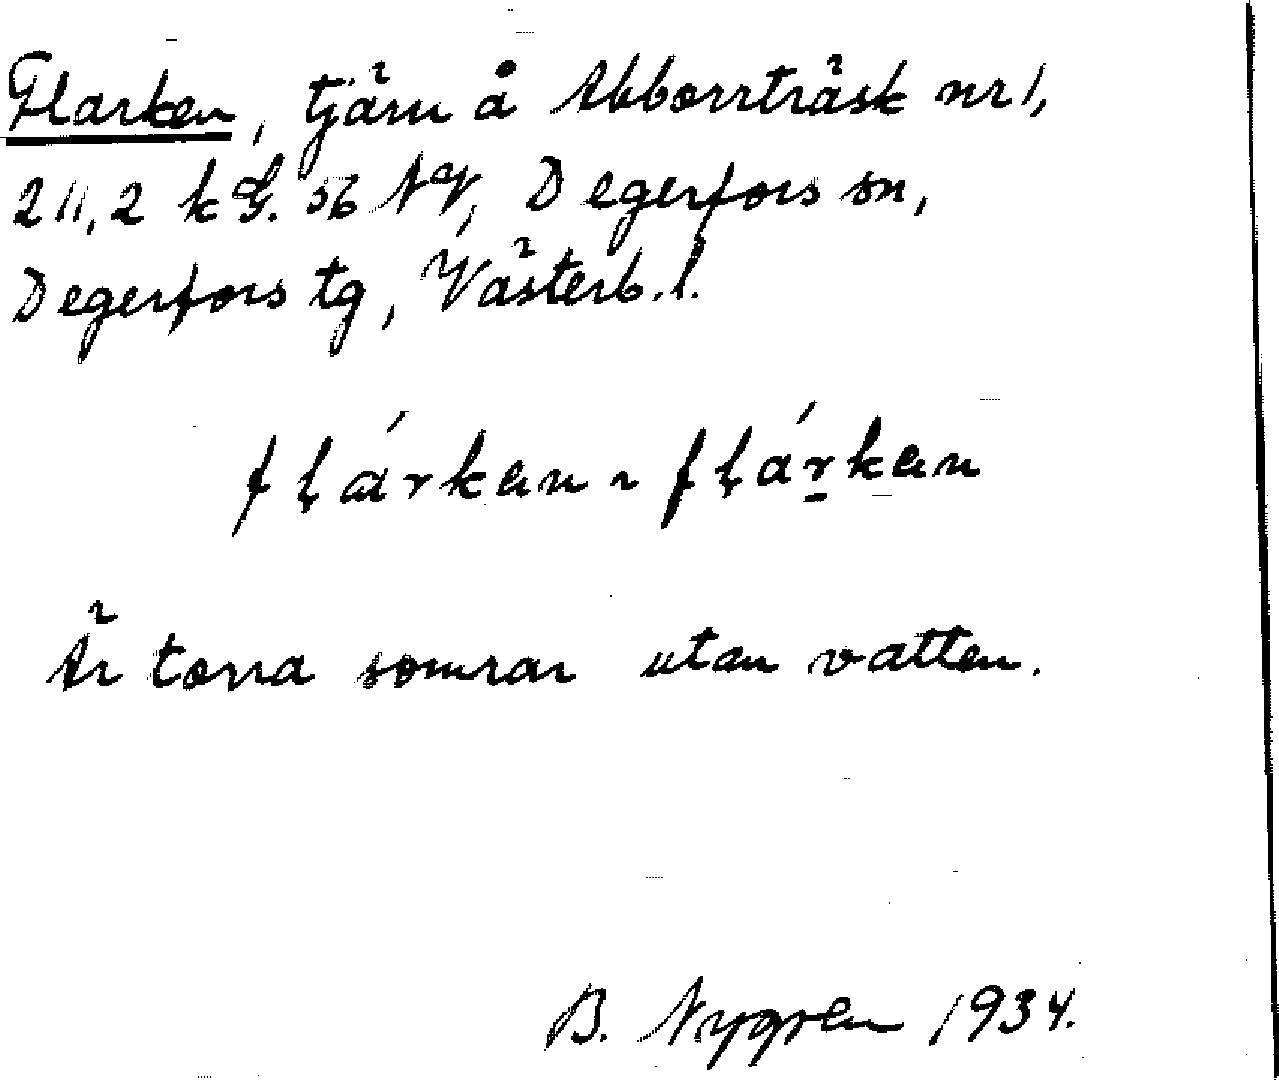 Flarken, tjärn å Abborrträsk nr 1,
211,2 kG. 56 NV, Degerfors sn,
Degerfors tg, Västerb. l.
flárken ~ flár̲ken
Är torra somrar utan vatten.
B. Nygren 1934.